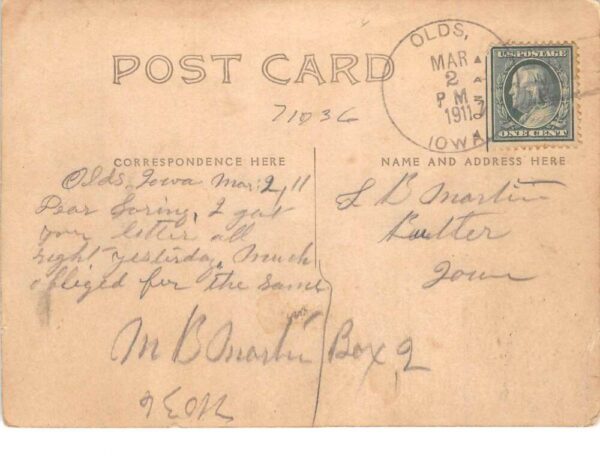 POST CARD
OLDS,
MAR
2
P M
1911
IOWA
U.S. POSTAGE
ONE CENT
71036
CORRESPONDENCE HERE
NAME AND ADDRESS HERE
Olds, Iowa Mar 2, 11
Dear Loring, I got
your letter all
right yesterday. Much
obliged for the same
M B Martin Box 2
L B Martin
Iowa